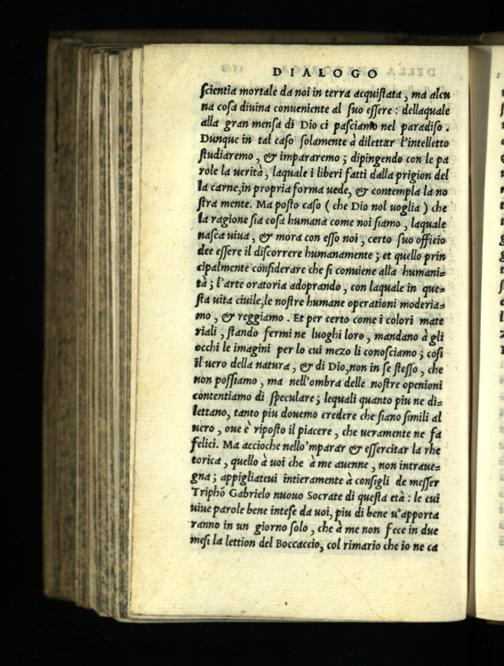 DIALOGO
ſcientia mortale da noi in terra acquiſtata, ma alcu
na coſa diuina conueniente al ſuo eſſere: dellaquale
alla gran menſa di Dio ci paſciamo nel paradiſo.
Dunque in tal caſo ſolamente à dilettar l'intelletto
ſtudiaremo, & impararemo; dipingendo con le pa
role la uerità, laquale i liberi fatti dalla prigion del
la carne, in propria forma uede, & contempla la no
ſtra mente. Ma poſto caſo (che Dio nol uoglia) che
la ragione ſia coſa humana come noi ſiamo, laquale
naſca uiua, & mora con eſſo noi, certo ſuo officio
dee eſſere il diſcorrere humanamente; et quello prin
cipalmente conſiderare che ſi conuiene alla humani-
tà; l'arte oratoria adoprando, con laquale in que-
ſta uita ciuile, le noſtre humane operationi moderia-
mo, & reggiamo. Et per certo come i colori mate
riali, ſtando fermi ne luoghi loro, mandano à gli
occhi le imagini per lo cui mezo li conoſciamo; coſi
il uero della natura, & di Dio, non in ſe ſteſſo, che
non poſſiamo, ma nell'ombra delle noſtre openioni
contentiamo di ſpeculare; lequali quanto piu ne di-
lettano, tanto piu douemo credere che ſiano ſimili al
uero, oue è ripoſto il piacere, che ueramente ne fa
felici. Ma accioche nello'mparar & eſſercitar la rhe
torica, quello à uoi che à me auenne, non intraue-
gna; appigliateui intieramente à conſigli de meſſer
Triphò Gabrielo nuouo Socrate di queſta età: le cui
uiue parole bene inteſe da uoi, piu di bene u'apporta
ranno in un giorno ſolo, che à me non fece in due
meſi la lettion del Boccaccio, col rimario che io ne ca